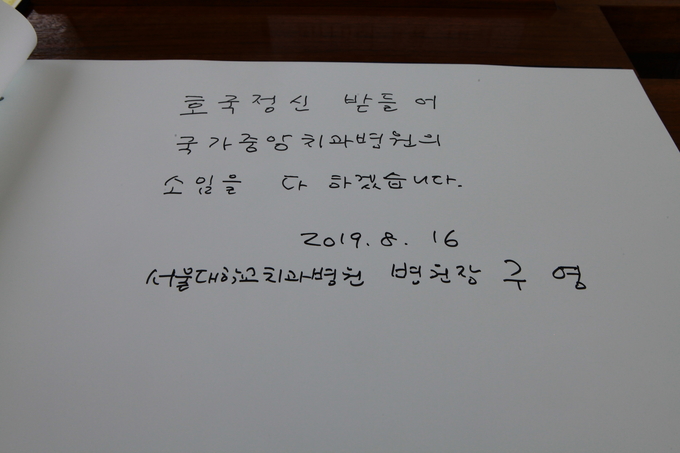 호국정신 받들어
국가중앙치과병원의
소임을 다 하겠습니다.
2019. 8. 16
서울대학교치과병원 병원장 구 영